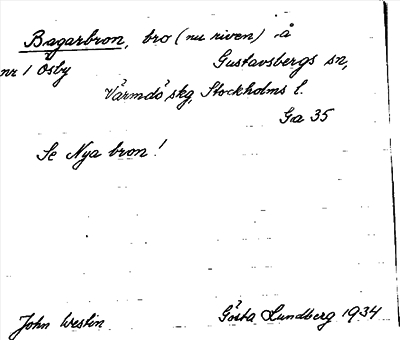 Bagarbron, bro (nu riven) å
nr 1 Ösby Gustavsbergs sn,
Värmdö skg, Stockholms l.
Ga 35
Se Nya bron!
John Westin Gösta Lundberg 1934